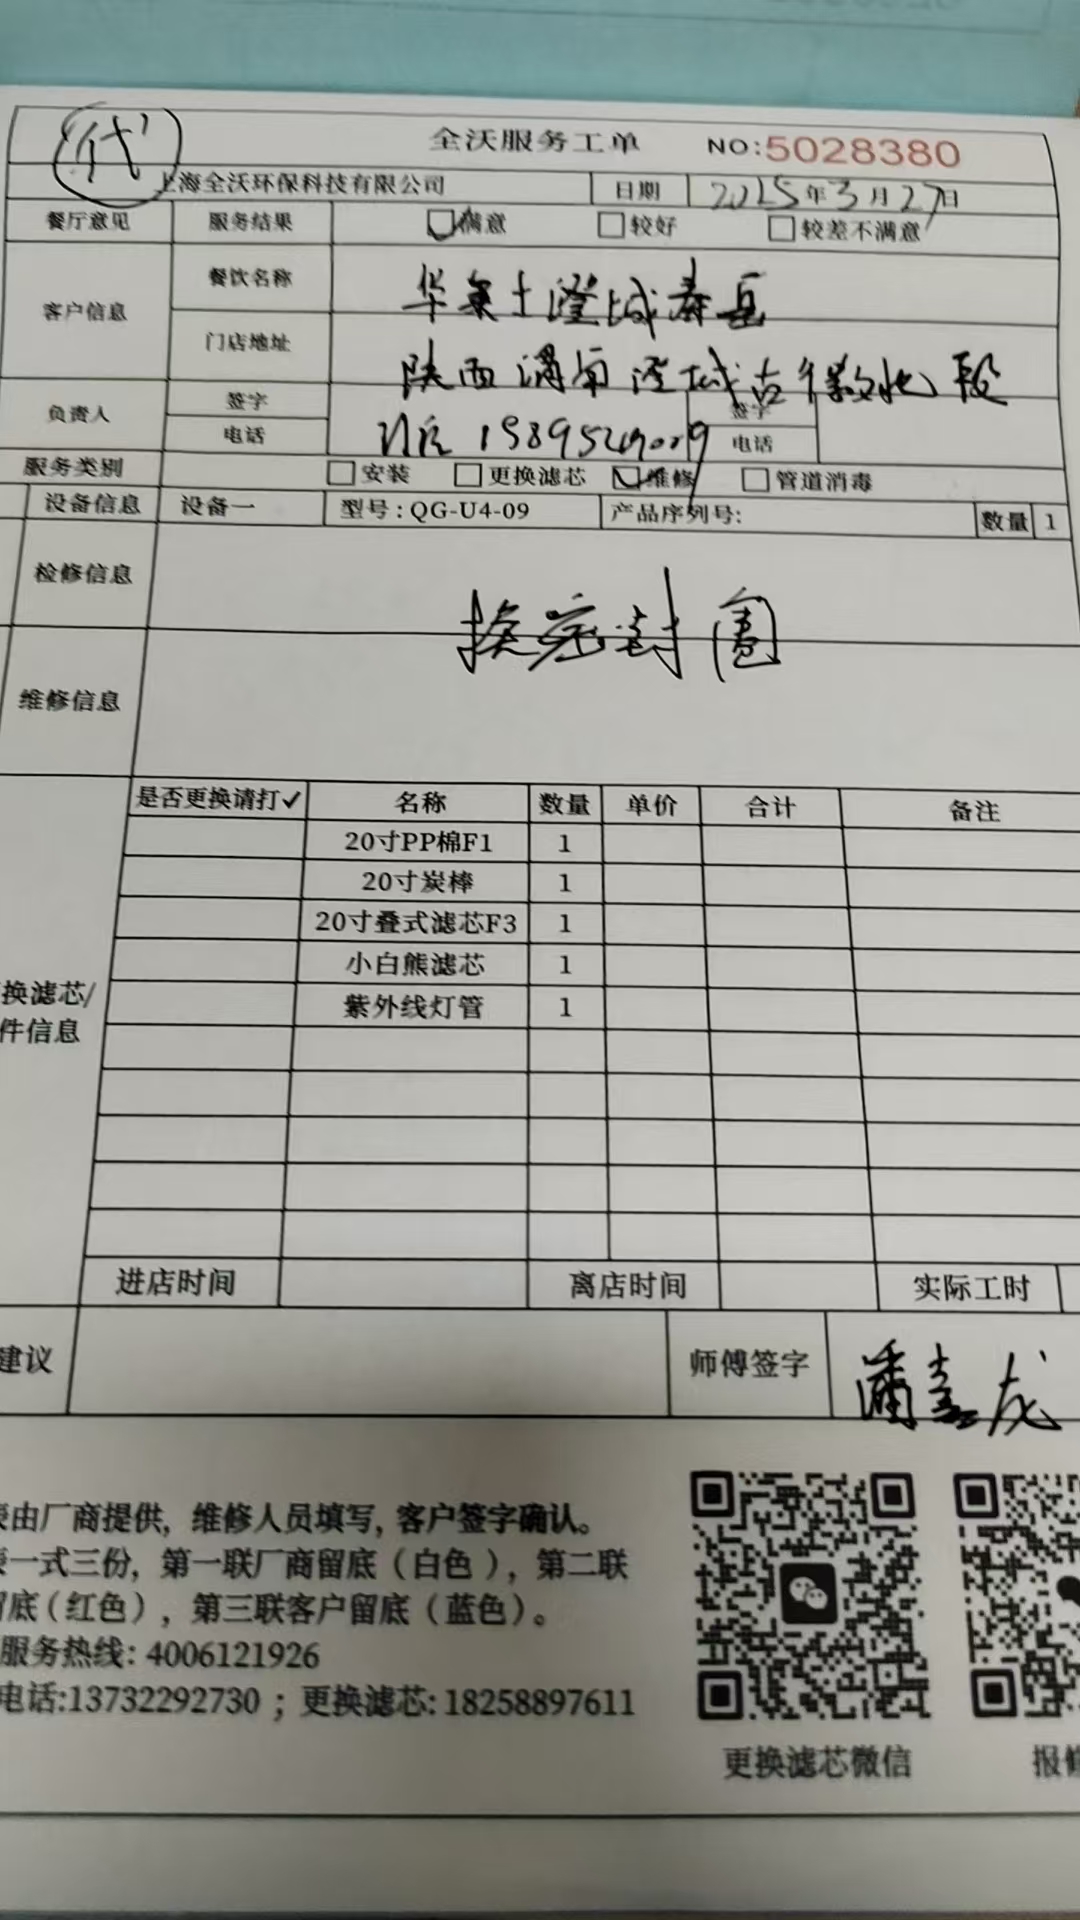 代
全沃服务工单 NO:5028380
上海全沃环保科技有限公司 日期 2025年3月27日
餐厅意见 服务结果 满意 较好 较差不满意
客户信息 餐饮名称 华莱士澄城寿县
门店地址 陕西渭南澄城古徵北段
负责人 签字 签字
电话 电话
服务类别 安装 更换滤芯 维修 管道消毒
设备信息 设备一 型号:QG-U4-09 产品序列号: 数量 1
检修信息 换密封圈
维修信息
是否更换请打✓ 名称 数量 单价 合计 备注
20寸PP棉F1 1
20寸炭棒 1
20寸叠式滤芯F3 1
小白熊滤芯 1
紫外线灯管 1
换滤芯/
件信息
进店时间 离店时间 实际工时
建议 师傅签字 潘鑫龙
由厂商提供, 维修人员填写, 客户签字确认。
一式三份, 第一联厂商留底(白色), 第二联
留底(红色), 第三联客户留底(蓝色)。
服务热线: 4006121926
电话:13732292730 ; 更换滤芯: 18258897611
更换滤芯微信 报修